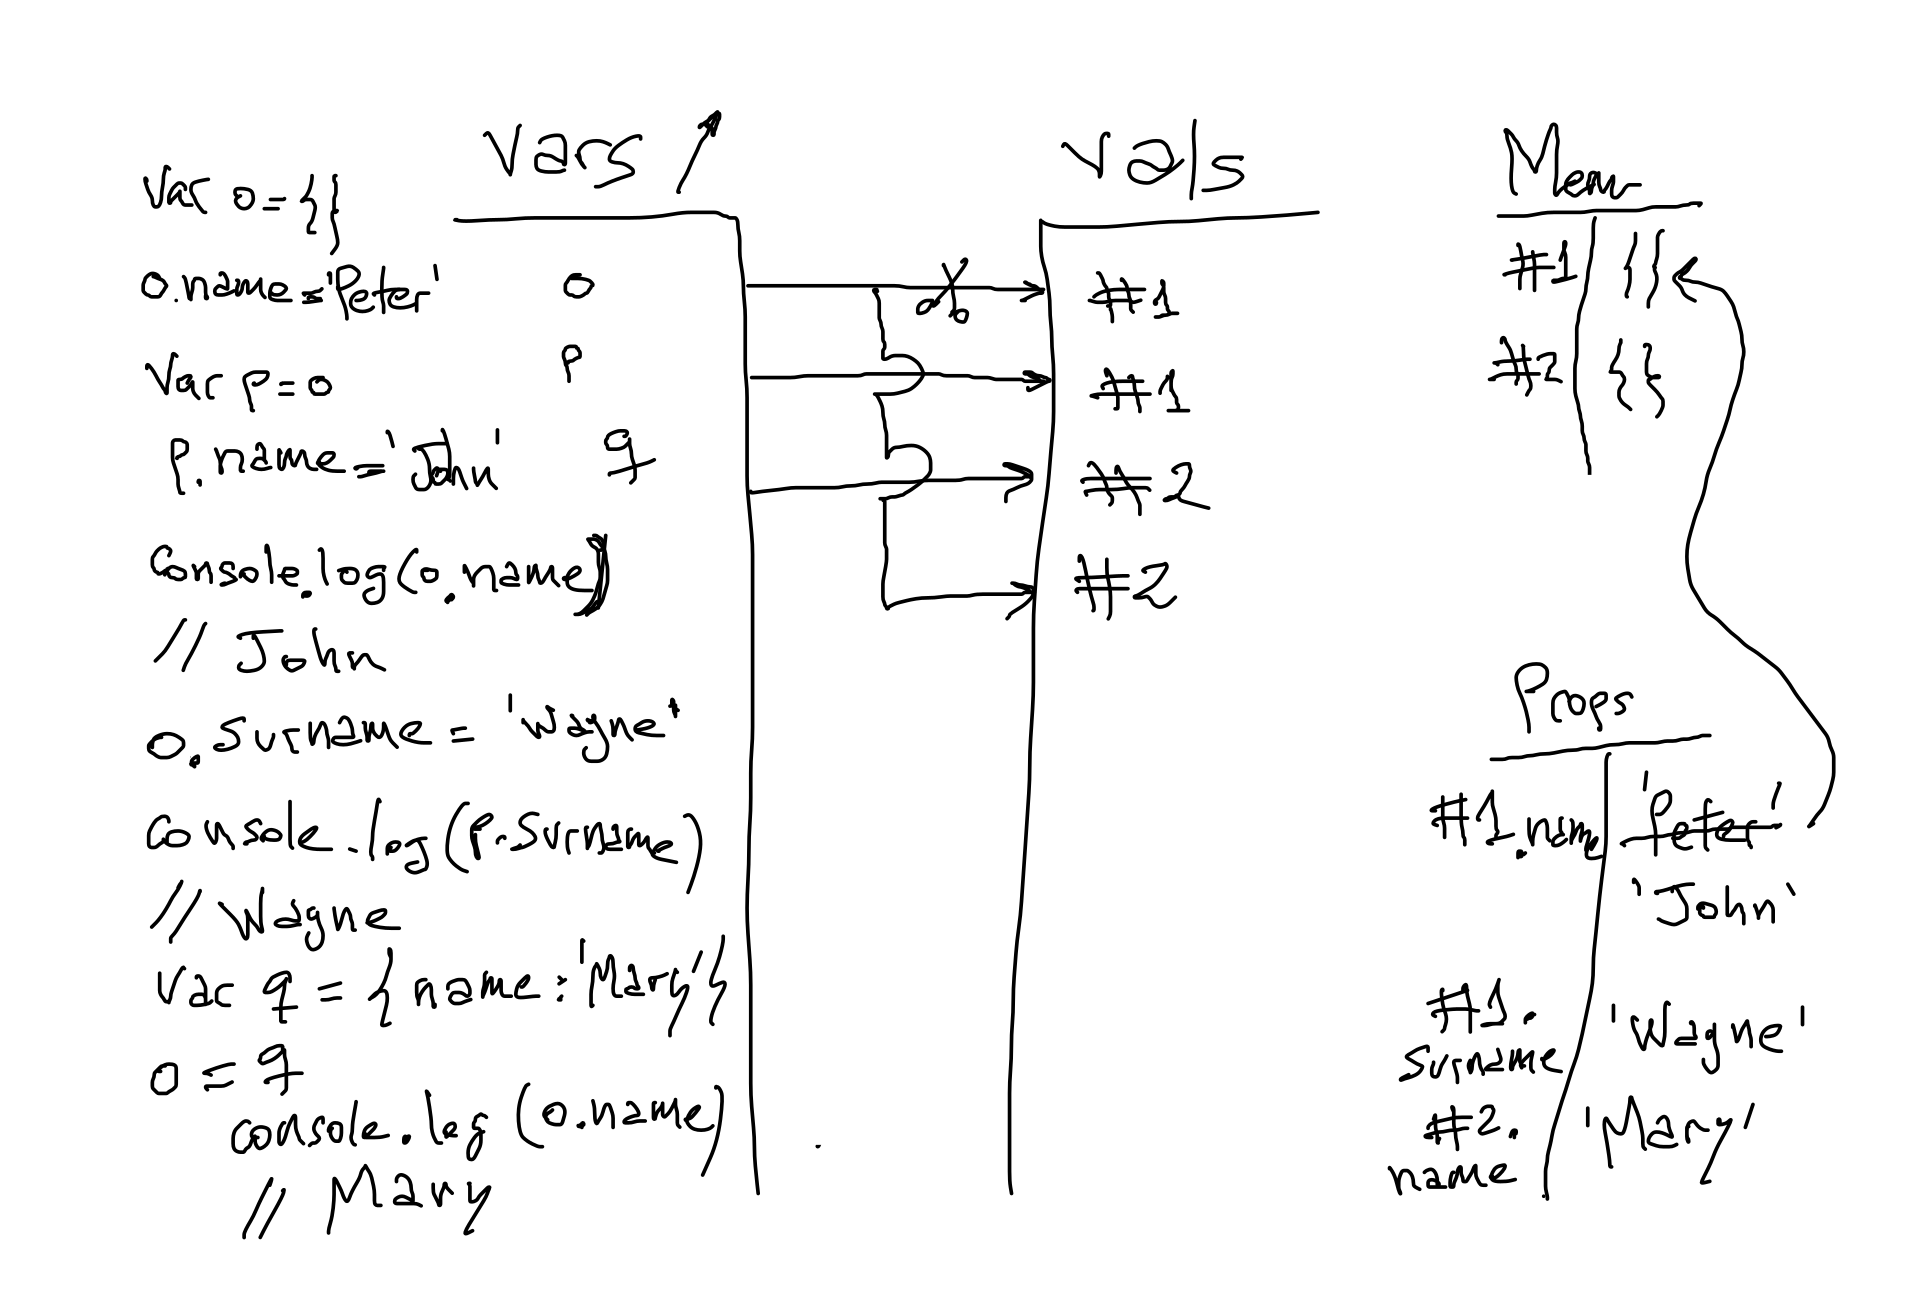 Var o={}
o.name='Peter'
Var p=o
p.name='John'
Console.log(o.name)
// John
o.surname='Wayne'
console.log(p.surname)
// Wayne
Var q={name:'Mary'}
o=q
console.log(o.name)
// Mary
Vars
o
p
q
Vals
#1
#1
#2
#2
Mem
#1 {}
#2 {}
Props
#1.name 'Peter'
'John'
#1. 'Wayne'
surname
#2. 'Mary'
name